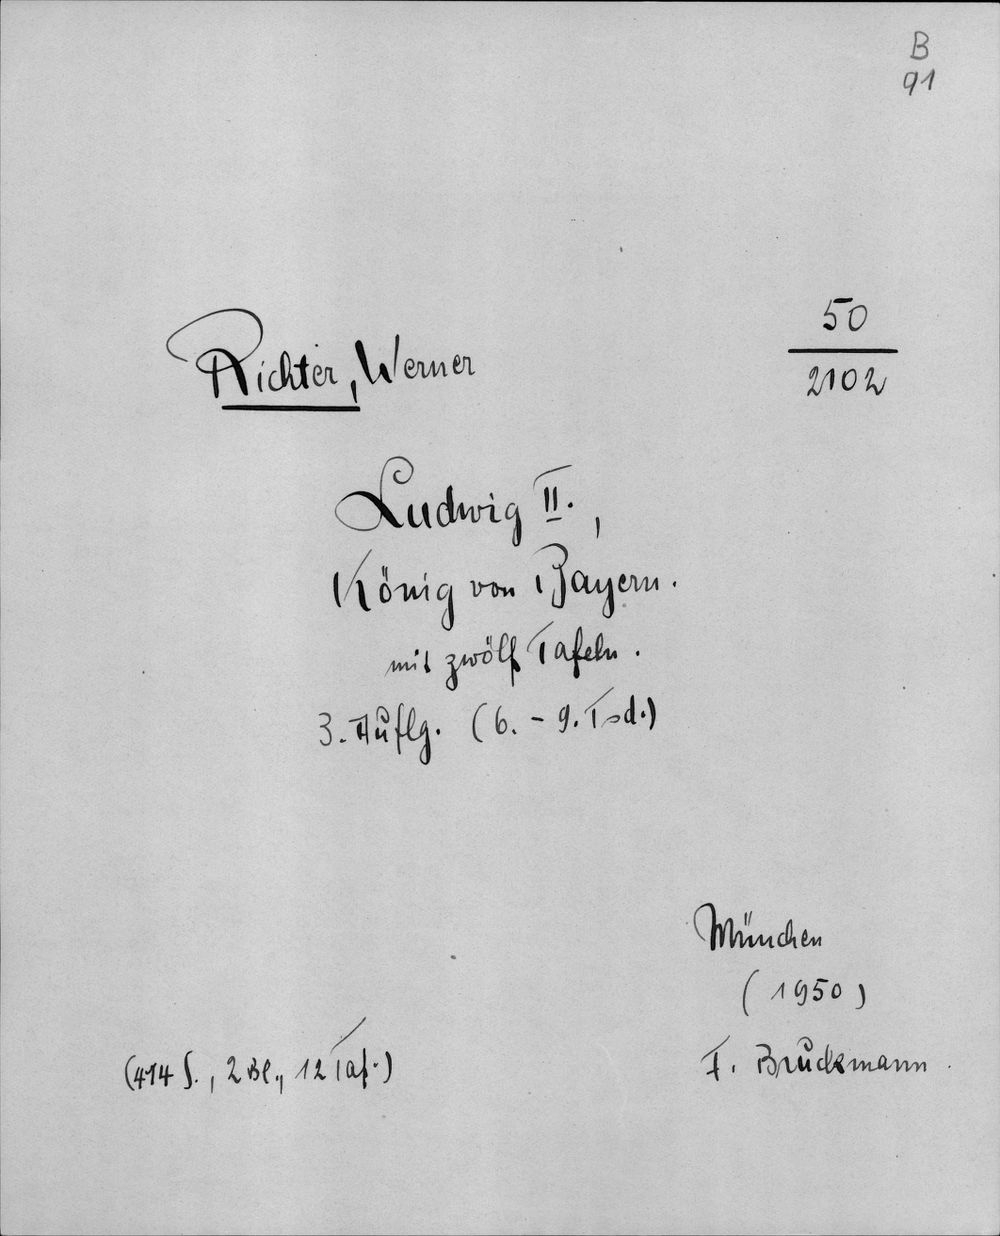 B
91
Richter, Werner
50
2102
Ludwig II.,
König von Bayern.
mit zwölf Tafeln.
3. Auflg. (6. - 9. Tsd.)
München
(1950)
F. Bruckmann
(414 S., 2 Bl., 12 Taf.)